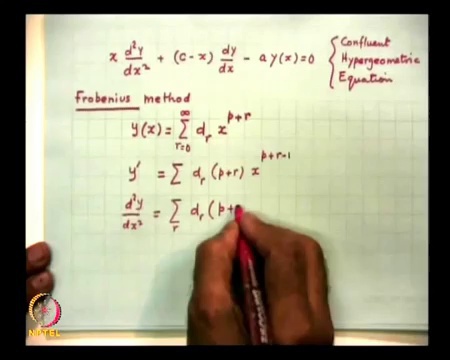 x d²y/dx² + (c-x) dy/dx - a y(x) = 0 { Confluent
Hypergeometric
Equation
Frobenius method
y(x) = ∑_{r=0}^{∞} d_r x^{p+r}
y' = ∑ d_r (p+r) x^{p+r-1}
d²y/dx² = ∑_r d_r (p+
NPTEL